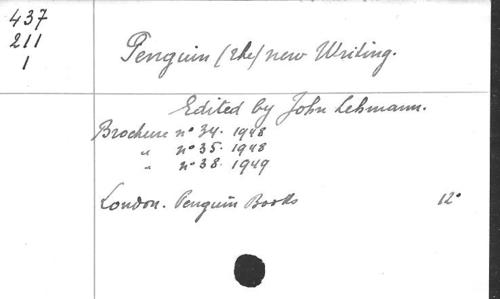 437
211
1
Penguin (the) new Writing.
Edited by John Lehmann.
Brochure n° 34. 1948
" n° 35. 1948
" n° 38. 1949
London. Penguin Books 12°